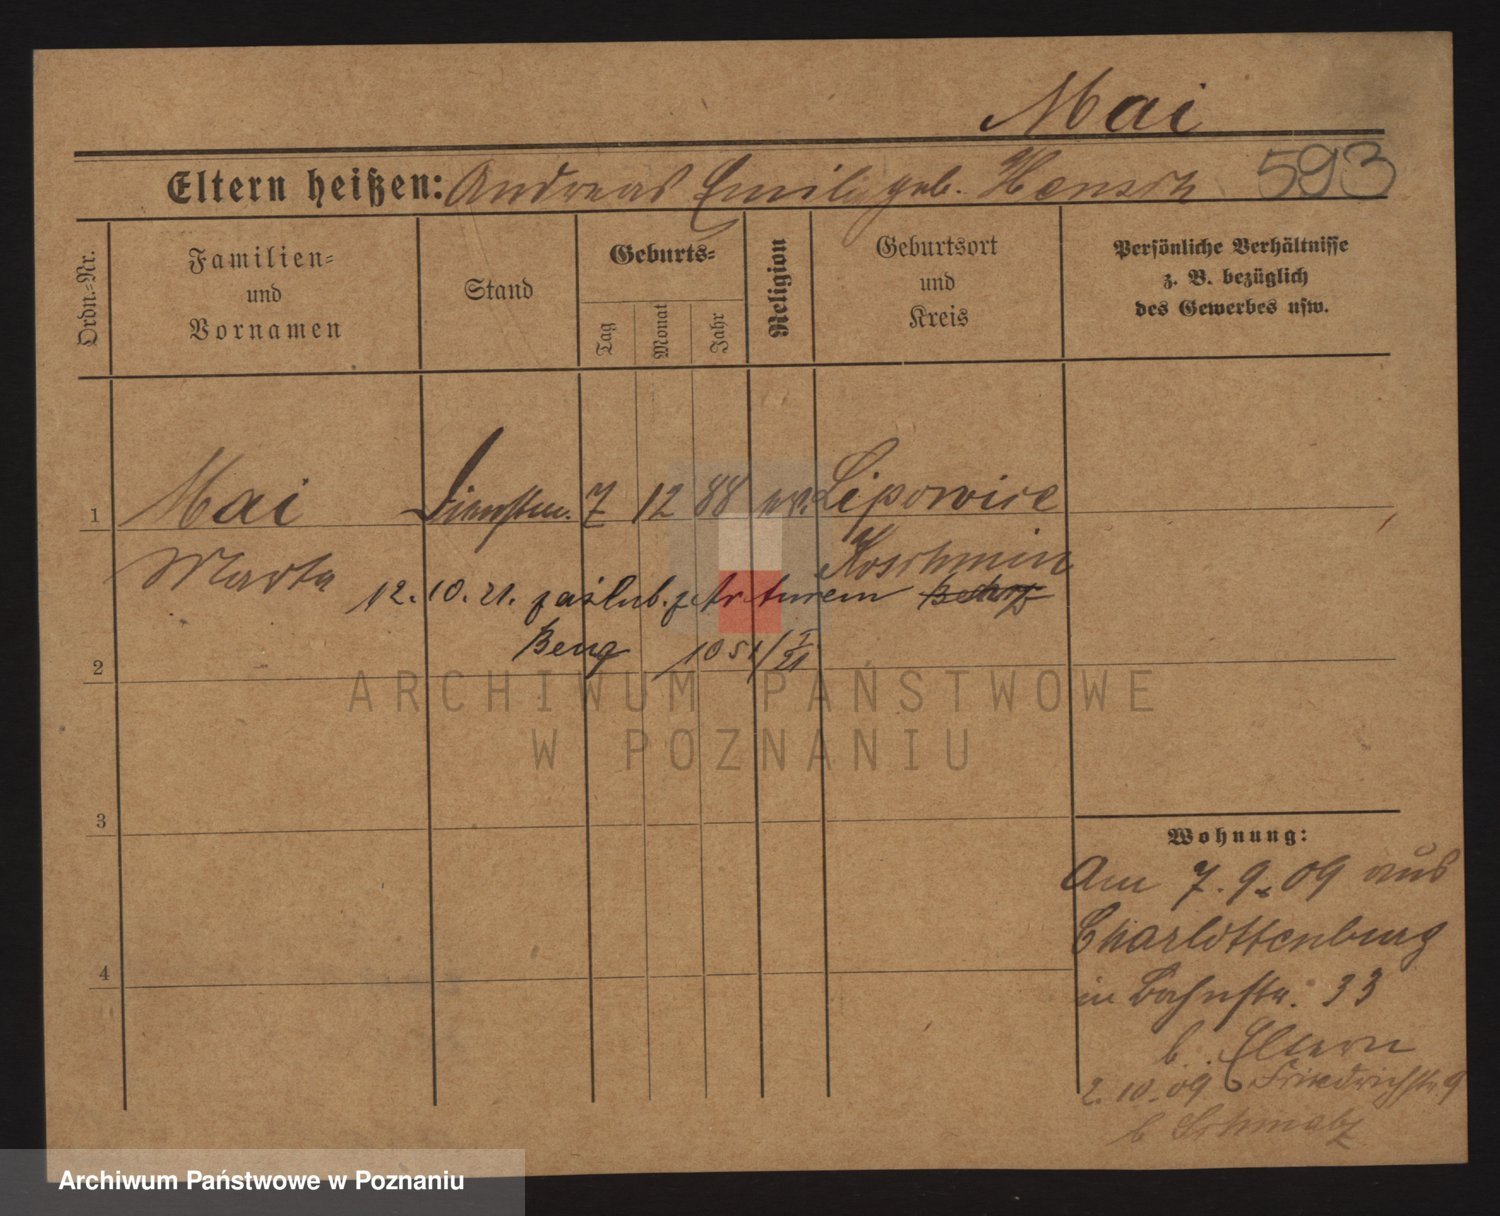 Mai
593
Eltern heißen: Andreas Emilie geb. Hensch
Ordn.-Nr.
Familien- und Vornamen
Stand
Geburts-
Tag
Monat
Jahr
Religion
Geburtsort und Kreis
Persönliche Verhältnisse
z. B. bezüglich
des Gewerbes usw.
1 Mai Dienstm. 7 12 88 ev. Lipowice
Marta Koschmin
12.10.21. zaślub. z Arturem
Beng 1051/I 21
2
ARCHIWUM PAŃSTWOWE
W POZNANIU
3
4
Wohnung:
Am 7.9.09 aus
Charlottenburg
in Bahnstr. 33
b. Eltern
2.10.09 Friedrichstr 9
b Schmalz
Archiwum Państwowe w Poznaniu